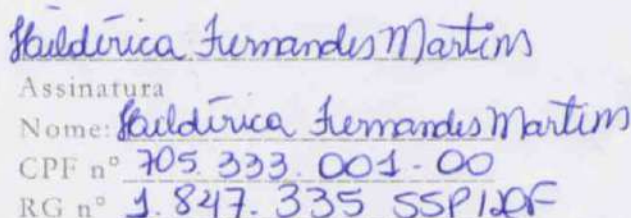 Haildérica Fernandes Martins
Assinatura
Nome: Haildérica Fernandes Martins
CPF nº 705.333.001-00
RG nº 1.847.335 SSP/DF